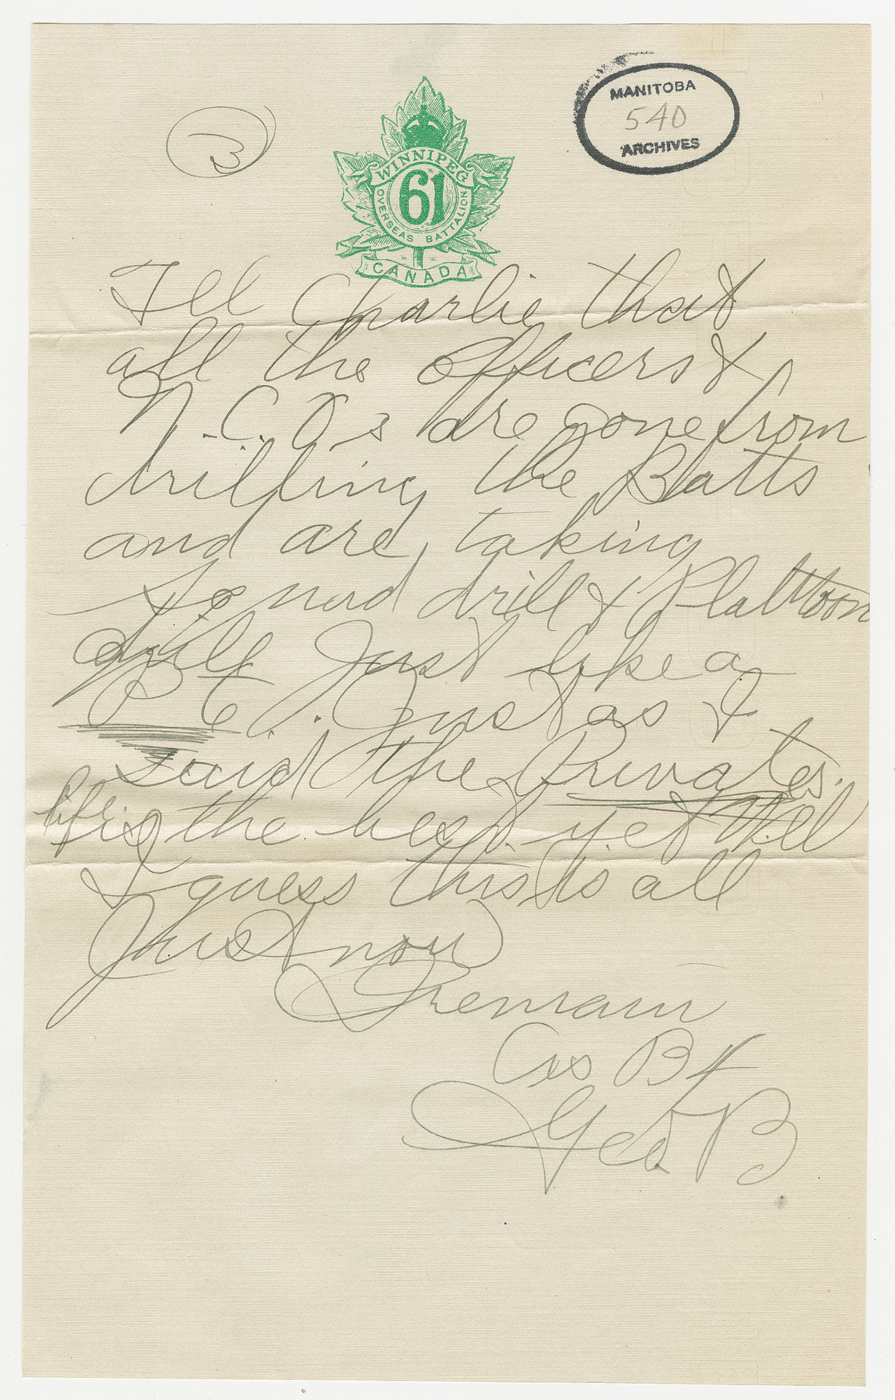 3
WINNIPEG
61
OVERSEAS BATTALION
CANADA
MANITOBA
540
ARCHIVES
Tell Charlie that
all the officers &
N.C.O's are gone from
drilling the Batts
and are, taking
Squad drill & Plattoon
drill Just like a
Pte. Just as I
said the Privates.
life is the best yet Well
I guess this is all
Just now
I remain
As B4
Geo B